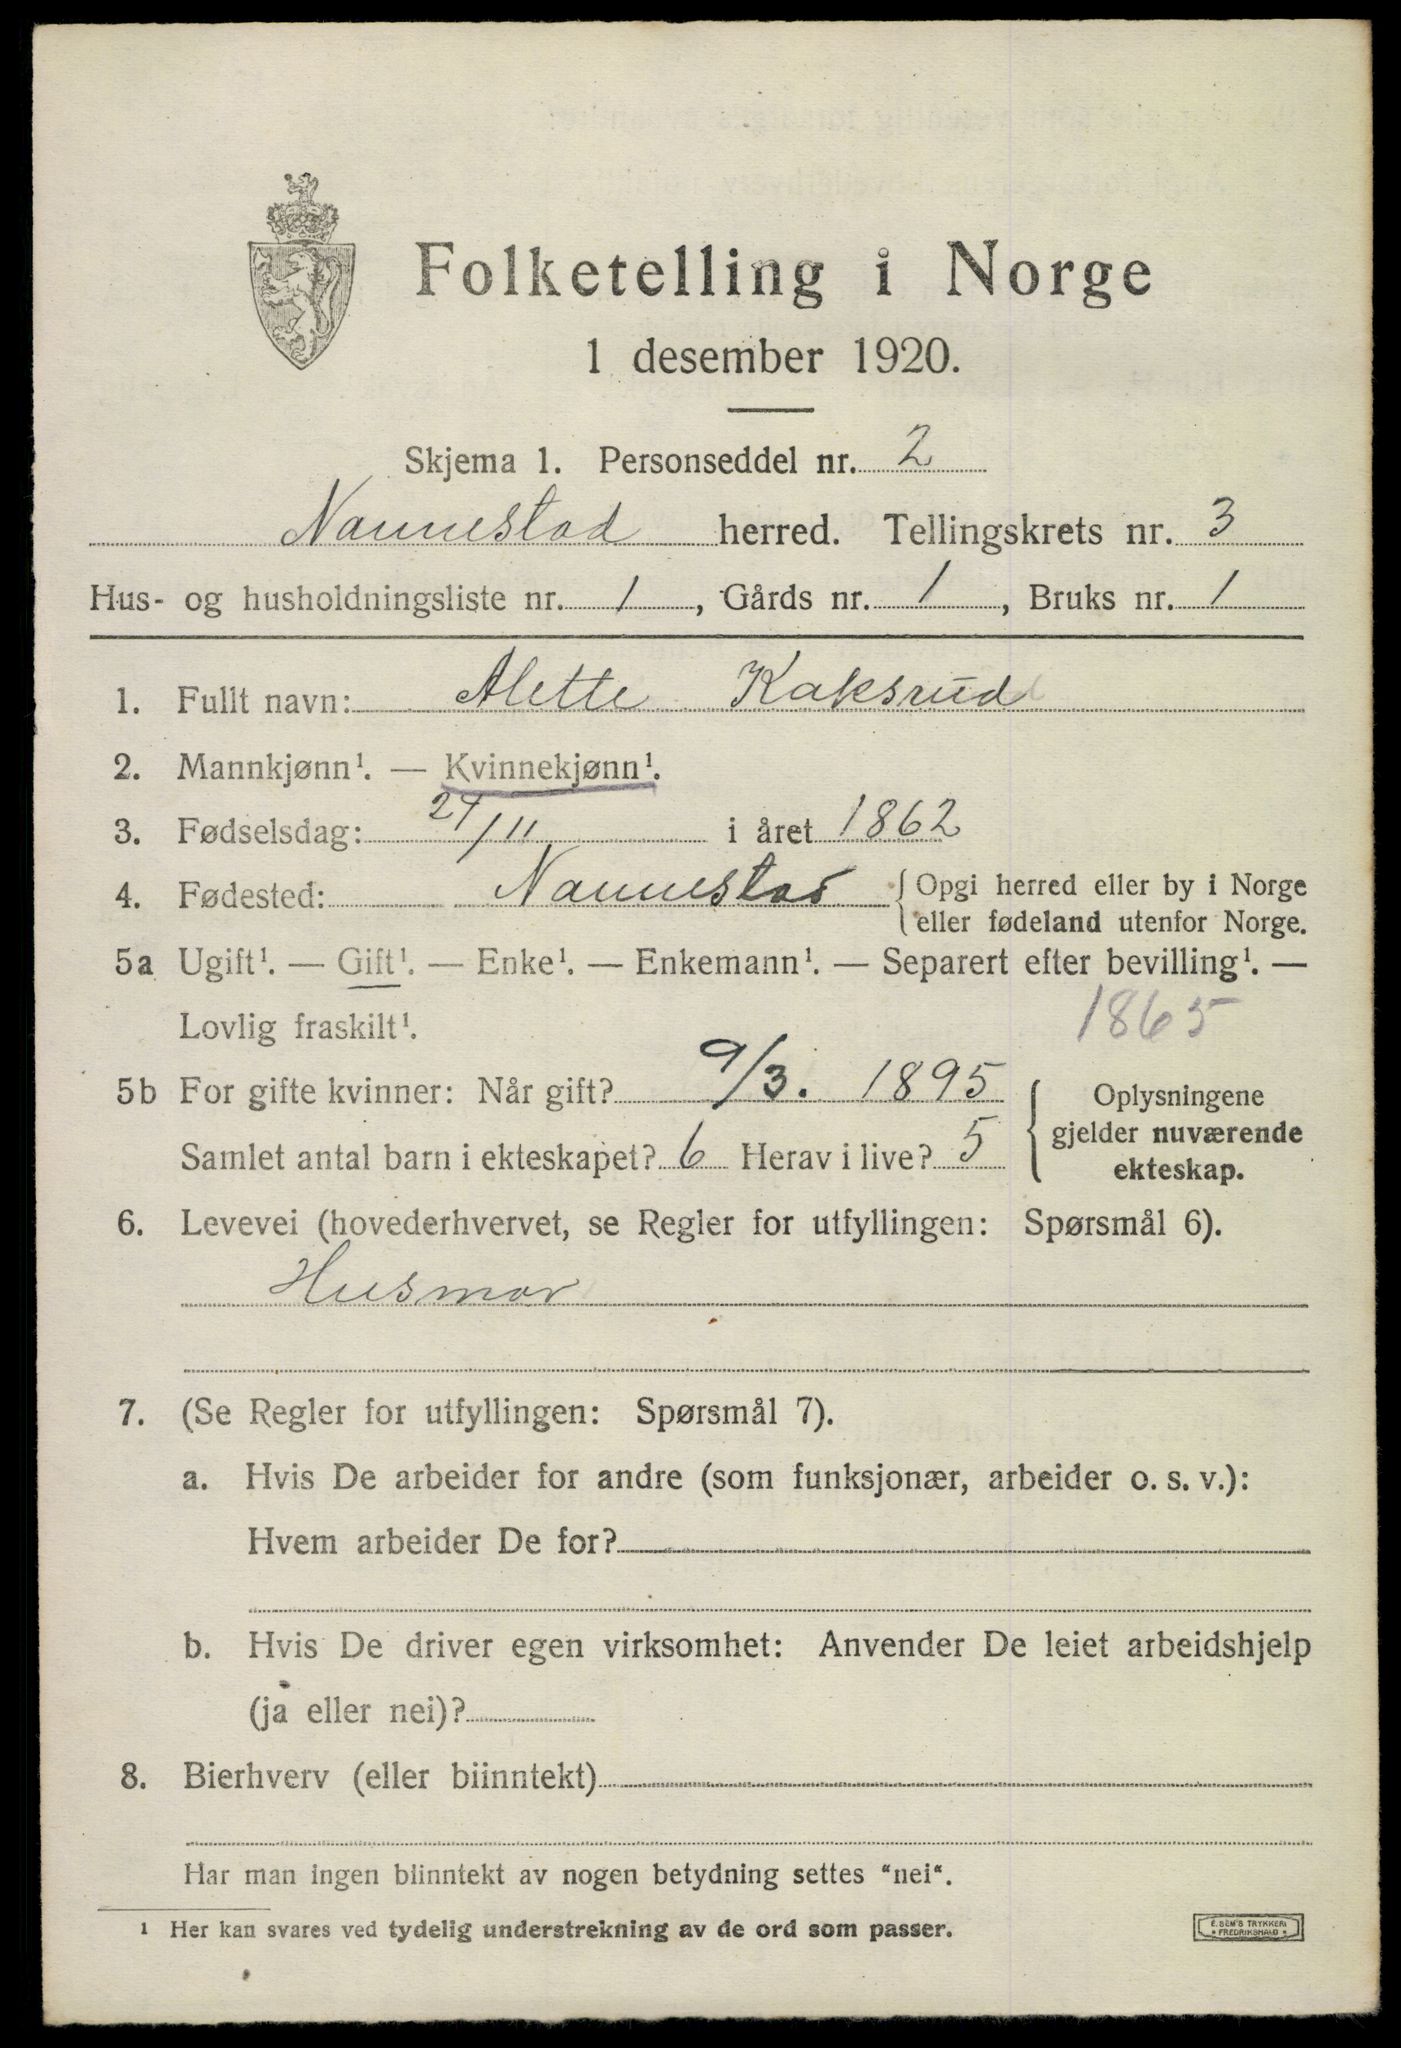 Folketelling i Norge
1 desember 1920.
Skjema 1. Personseddel nr. 2
Nannestad herred. Tellingskrets nr. 3
Hus- og husholdningsliste nr. 1, Gårds nr. 1, Bruks nr. 1
1. Fullt navn: Alette Kaksrud
2. Mannkjønn¹. — Kvinnekjønn¹.
3. Fødselsdag: 24/11 i året 1862
4. Fødested: Nannestad { Opgi herred eller by i Norge
eller fødeland utenfor Norge.
5a Ugift¹. — Gift¹. — Enke¹. — Enkemann¹. — Separert efter bevilling¹. —
Lovlig fraskilt¹. 1865
5b For gifte kvinner: Når gift? 9/3. 1895 { Oplysningene
gjelder nuværende
Samlet antal barn i ekteskapet? 6 Herav i live? 5
ekteskap.
6. Levevei (hovederhvervet, se Regler for utfyllingen: Spørsmål 6).
Husmor
7. (Se Regler for utfyllingen: Spørsmål 7).
a. Hvis De arbeider for andre (som funksjonær, arbeider o. s. v.):
Hvem arbeider De for?
b. Hvis De driver egen virksomhet: Anvender De leiet arbeidshjelp
(ja eller nei)?
8. Bierhverv (eller biinntekt)
Har man ingen biinntekt av nogen betydning settes "nei".
¹ Her kan svares ved tydelig understrekning av de ord som passer.
E. SEM'S TRYKKERI
FREDRIKSHALD